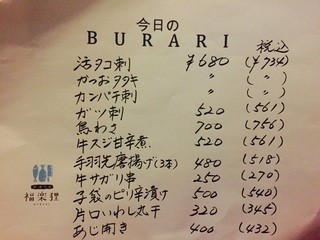 今日の
BURARI
税込
活タコ刺 ¥680 (¥734)
かつおタタキ 〃 (〃)
カンパチ刺 〃 (〃)
ガツ刺 520 (561)
馬わさ 700 (756)
牛スジ甘辛煮 520 (561)
手羽先唐揚げ(3本) 480 (518)
牛サガリ串 250 (270)
子袋のピリ辛漬け 500 (540)
片口いわし丸干 320 (345)
あじ開き 400 (432)
福楽狸